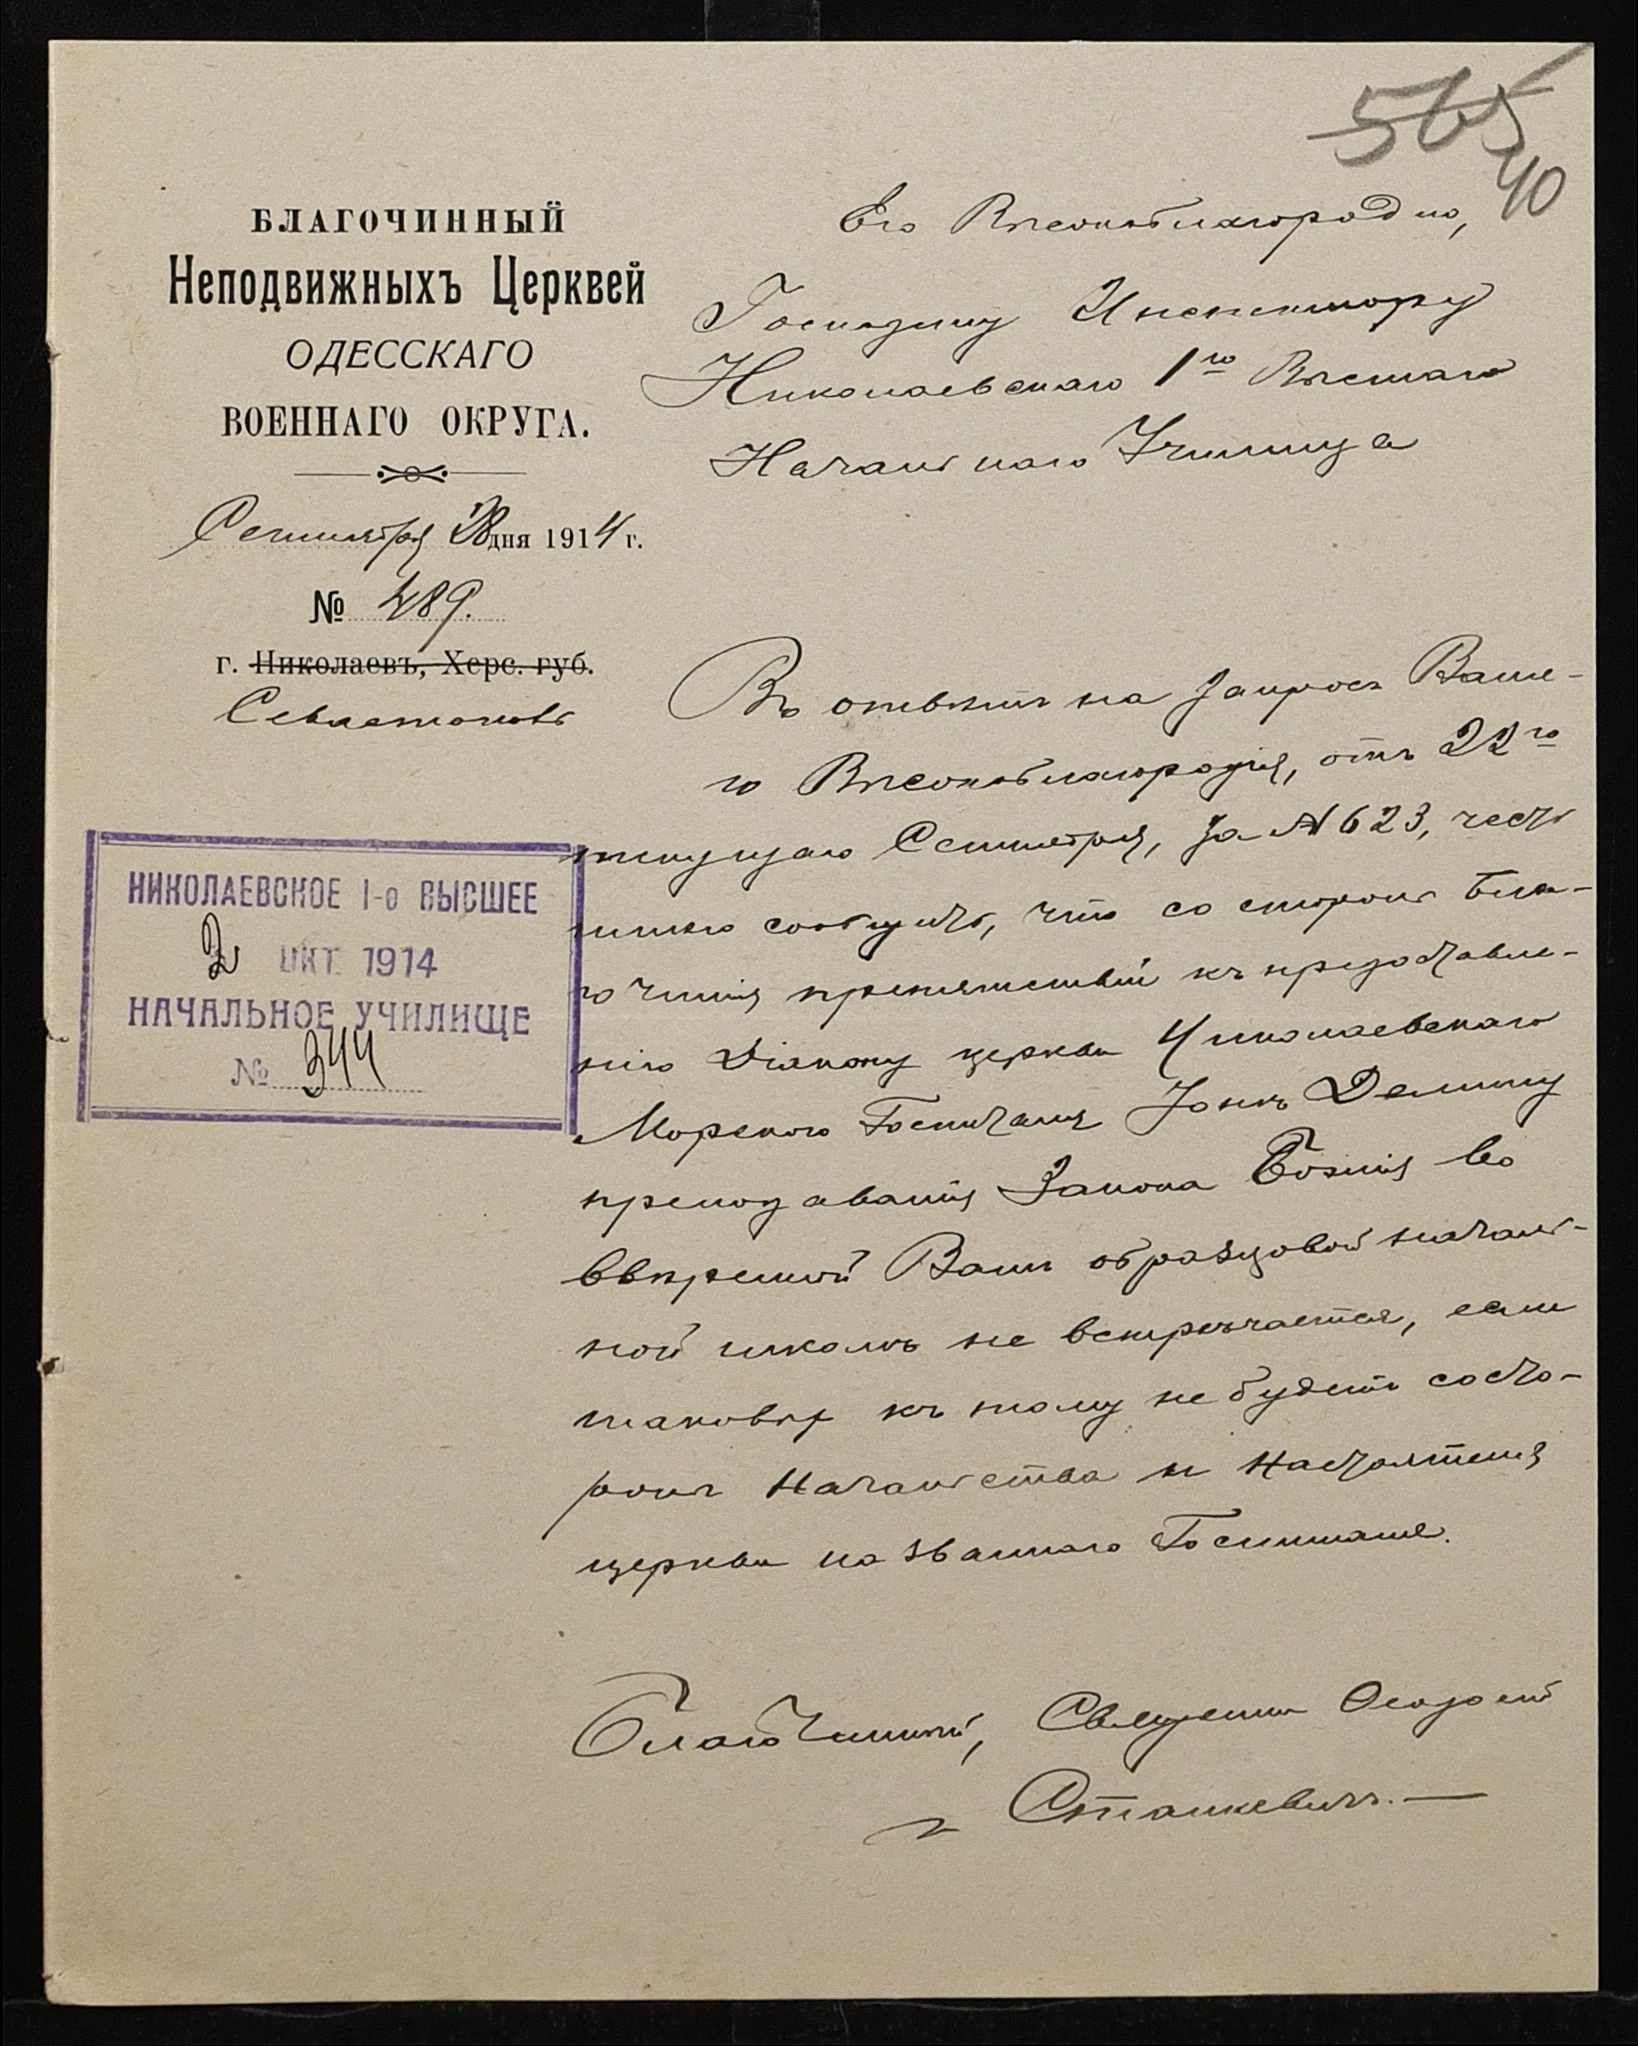 565
40
БЛАГОЧИННЫЙ
Неподвижныхъ Церквей
ОДЕССКАГО
ВОЕННАГО ОКРУГА.
Сентября 28 дня 1914 г.
№ 489.
г. Николаевъ, Херс. губ.
Севастополь
Его Высокоблагородію,
Господину Инспектору
Николаевскаго 1го Высшаго
Начальнаго Училища
Въ отвѣтъ на запросъ Ваше-
го Высокоблагородія, отъ 22го
текущаго Сентября, за № 623, честь
имѣю сообщить, что со стороны Бла-
гочинія препятствій къ предоставле-
нію Діакону церкви Николаевскаго
Морского Госпиталя Іонѣ Демину
преподаванія Закона Божія во
ввѣренной Вамъ образцовой началь-
ной школѣ не встрѣчается, если
таковыхъ къ тому не будетъ со сто-
роны Начальства и Настоятеля
церкви названнаго Госпиталя.
Благочинный, Священникъ
Станкевичъ.
НИКОЛАЕВСКОЕ 1-о ВЫСШЕЕ
2 ОКТ. 1914
НАЧАЛЬНОЕ УЧИЛИЩЕ
№ 344